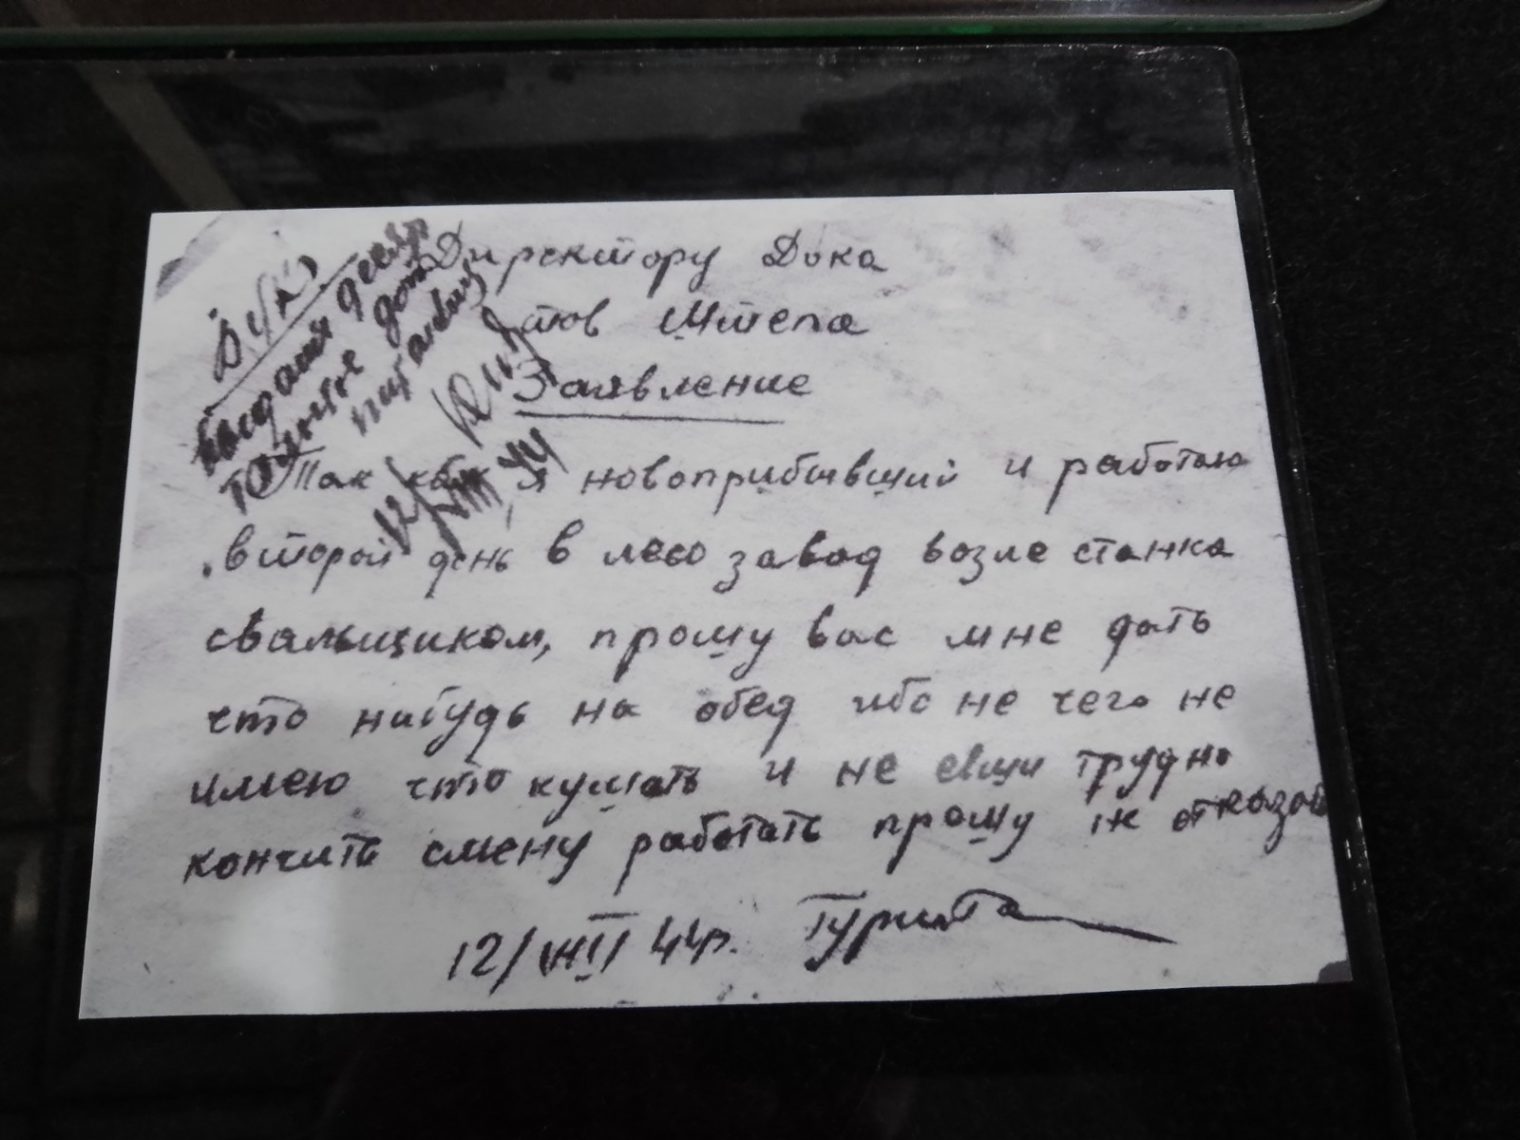 Директору Дока
тов Штепа
Заявление
Так как я новоприбывший и работаю
второй день в лесо завод возле станка
свальщиком, прошу вас мне дать
что нибудь на обед ибо не чего не
имею что кушать и не евши трудно
кончить смену работать прошу не отказать
12/VIII 44г.
выдать
питание
12/VIII 44